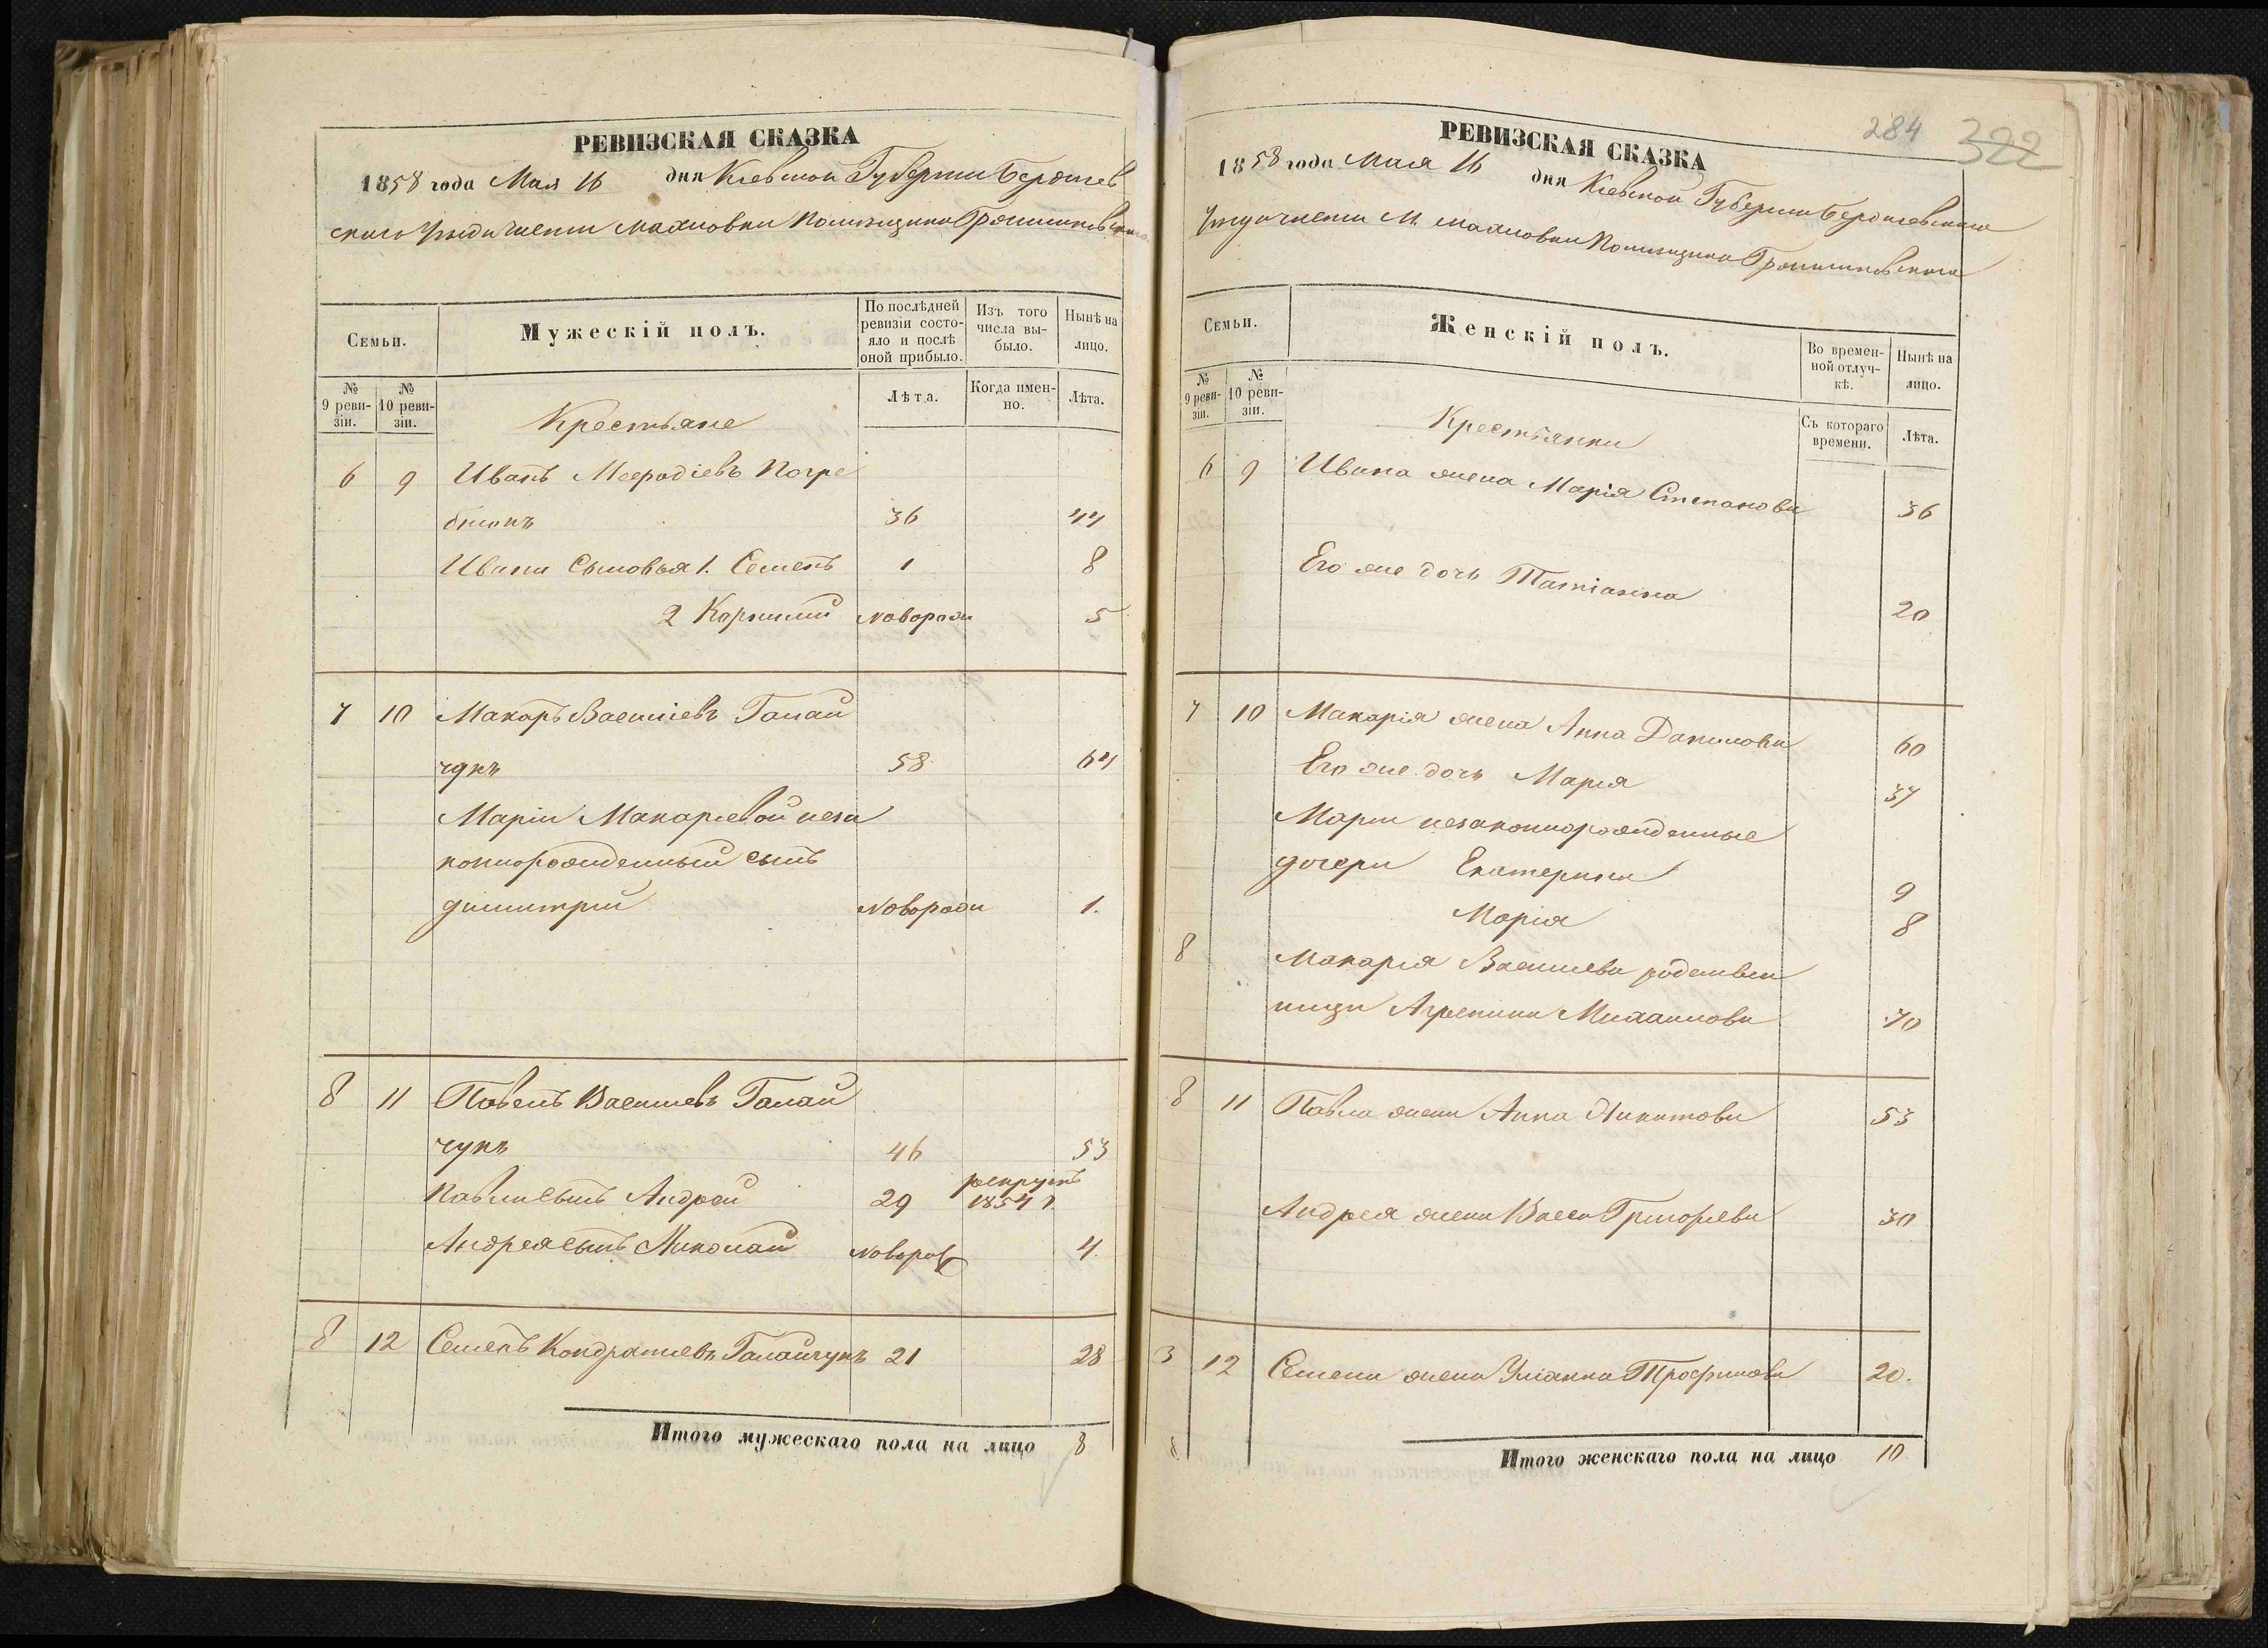 РЕВИЗСКАЯ СКАЗКА
1858 года Мая 16 дня Киевской Губернии Бердичев
скаго Уезда части Махновки Помещика
Семьи.
Мужескій полъ.
По послѣдней ревизіи состояло и послѣ оной прибыло.
Изъ того числа выбыло.
Нынѣ на лицо.
№ 9 ревизіи.
№ 10 ревизіи.
Крестьяне
Лѣта.
Когда именно.
Лѣта.
6 9 Иванъ Мефодіевъ Погре
бнюкъ 36 44
Ивана Сыновья 1. Семенъ 1 8
2 Корнилій Новорожд 5
7 10 Макаръ Василіевъ Галай
чукъ 58 64
Маріи Макаріевой неза
коннорожденный сынъ
Димитрій Новорожд 1.
8 11 Павелъ Василиевъ Галай
чукъ 46 53
Павла сынъ Андрей 29 рекрутъ 1854 г. 
Андрея сынъ Николай Новорож 4.
8 12 Семенъ Кондратиевъ Галайчукъ 21 28
Итого мужескаго пола на лицо 8
284 322
РЕВИЗСКАЯ СКАЗКА
1858 года Мая 16 дня Киевской Губернии Бердичевскаго
Уезда части М. Махновки Помещика
Семьи.
Женскій полъ.
Во временной отлучкѣ.
Нынѣ на лицо.
№ 9 ревизіи.
№ 10 ревизіи.
Крестьянки
Съ котораго времени.
Лѣта.
6 9 Ивана жена Марія Степанова 36
Его же дочь Татіанна 20
7 10 Макарія жена Анна Данилова 60
Его же дочь Марія 37
Маріи незаконнорожденные
дочери Екатерина 9
Марія 8
8 Макарія Василиева родствен
ница Агрепина Михайлова 70
8 11 Павла жена Анна Никитова 53
Андрея жена Васса Григорьева 30
3 12 Семена жена Уліанна Трофимова 20.
Итого женскаго пола на лицо 10